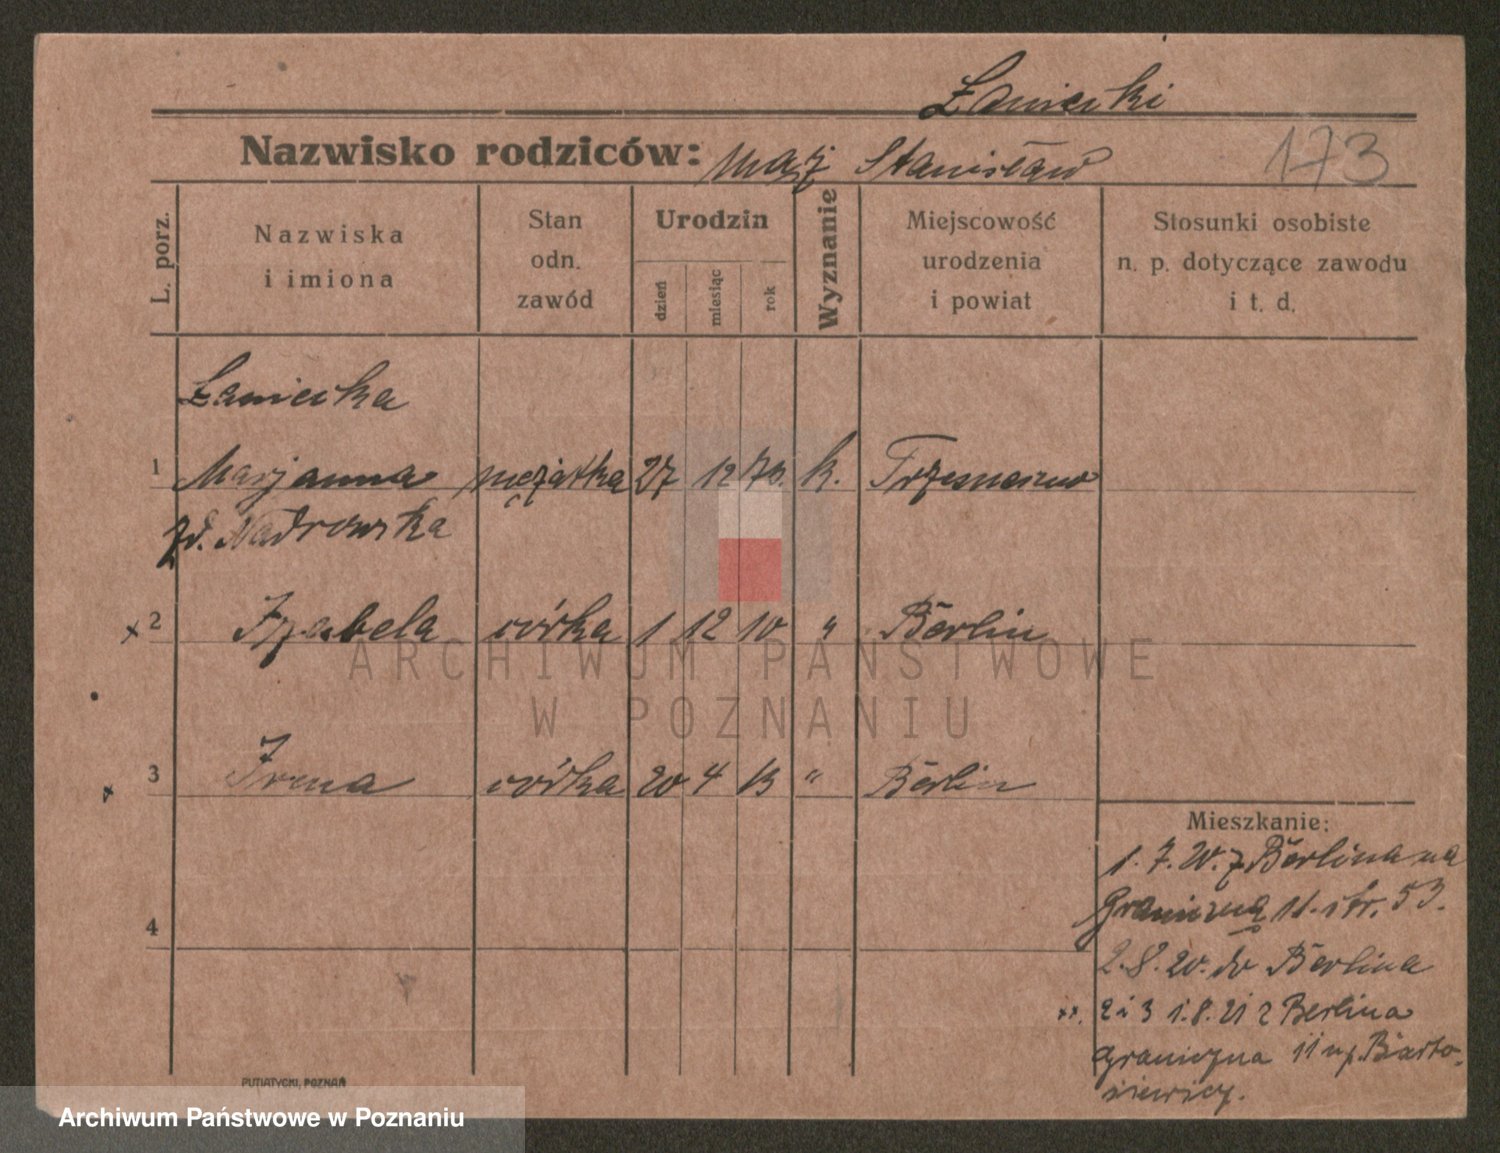 Łaniecki
Nazwisko rodziców: mąż Stanisław
173
L. porz.
Nazwiska
i imiona
Stan
odn.
zawód
Urodzin
dzień
miesiąc
rok
Wyznanie
Miejscowość
urodzenia
i powiat
Stosunki osobiste
n. p. dotyczące zawodu
i t. d.
Łaniecka
1 Marjanna mężatka 27 12 70. k. Trzemeszno
zd. Nadrowska
x 2 Izabela córka 1 12 10 " Berlin
x 3 Irena córka 20 4 13 " Berlin
4
Mieszkanie:
1. 7. 20. z Berlina na
Graniczną 11. 53.
2. 8. 20. do Berlina
xx. 2 i 3 1. 8. 21 z Berlina
Graniczna 11 u p. Barto-
siewicz.
PUTIATYCKI, POZNAŃ
ARCHIWUM PAŃSTWOWE
W POZNANIU
Archiwum Państwowe w Poznaniu